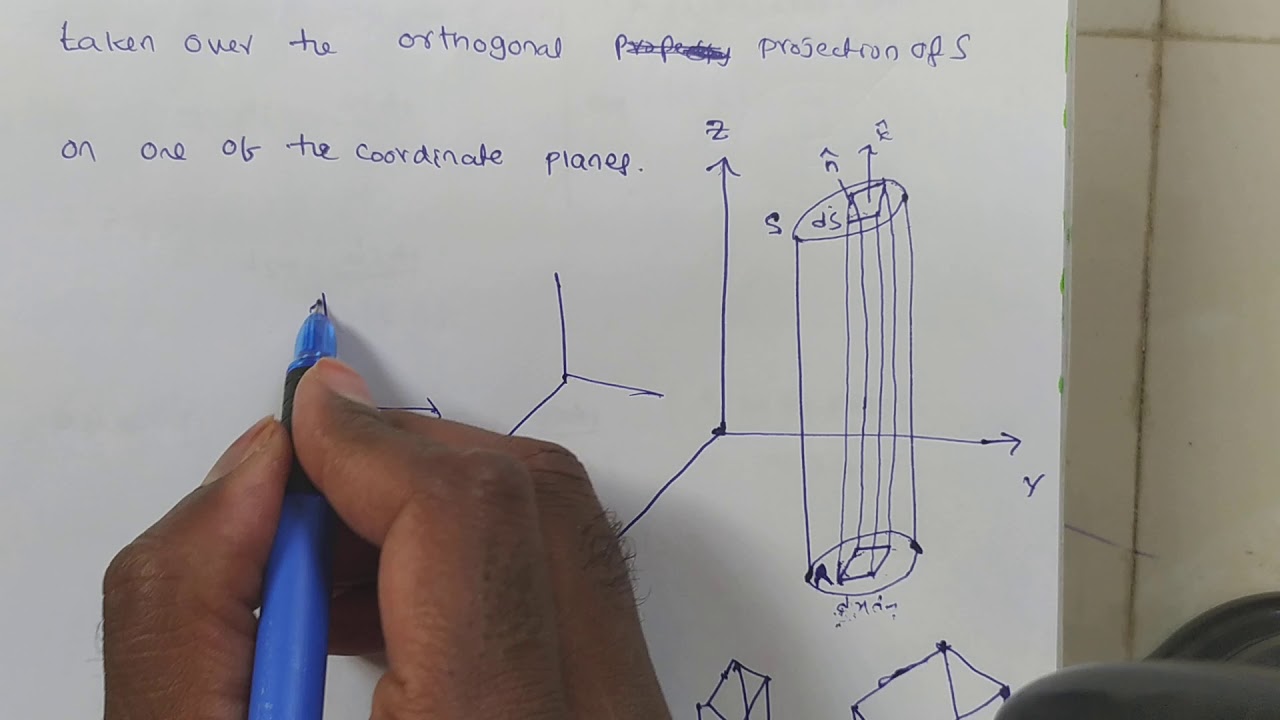 taken over the orthogonal projection of S
on one of the coordinate planes.
Z
k̂
n̂
S
dS
Y
R